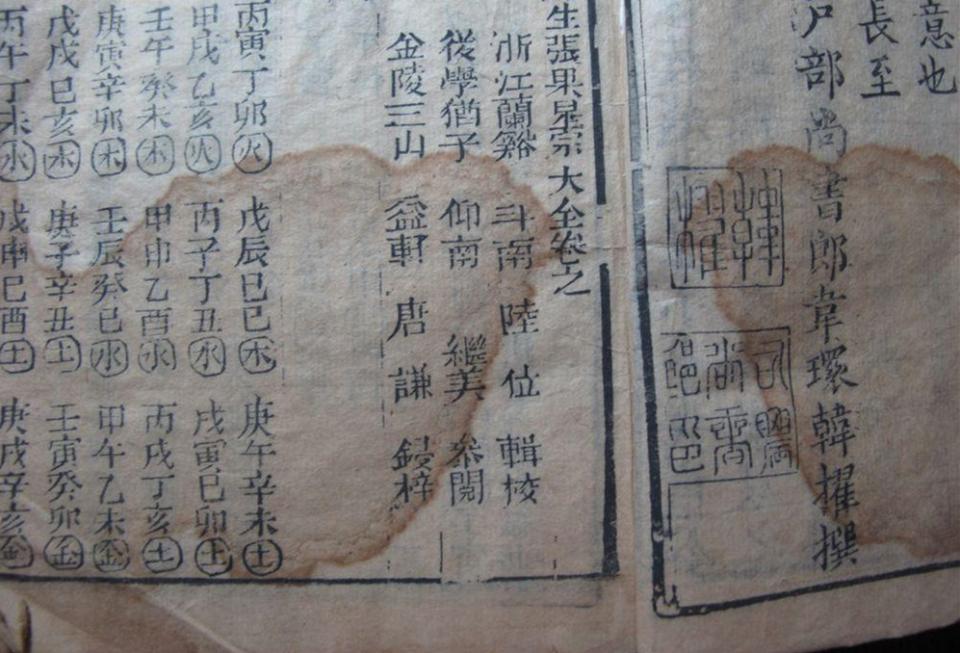 意也
長至
戶部尚書郎韋環韓擢撰
韓擢
生張果星宗大全卷之
浙江蘭谿 斗南 陸位 輯校
從學猶子 仰南 繼美 叅閱
金陵三山 益軒 唐謙 鋟梓
丙寅丁卯火 戊辰巳巳木 庚午辛未土
甲戌乙亥火 丙子丁丑水 戊寅巳卯土
壬午癸未木 甲申乙酉水 丙戌丁亥土
庚寅辛卯木 壬辰癸巳水 甲午乙未金
戊戌巳亥木 庚子辛丑土 壬寅癸卯金
丙午丁未水 戊申巳酉土 庚戌辛亥金